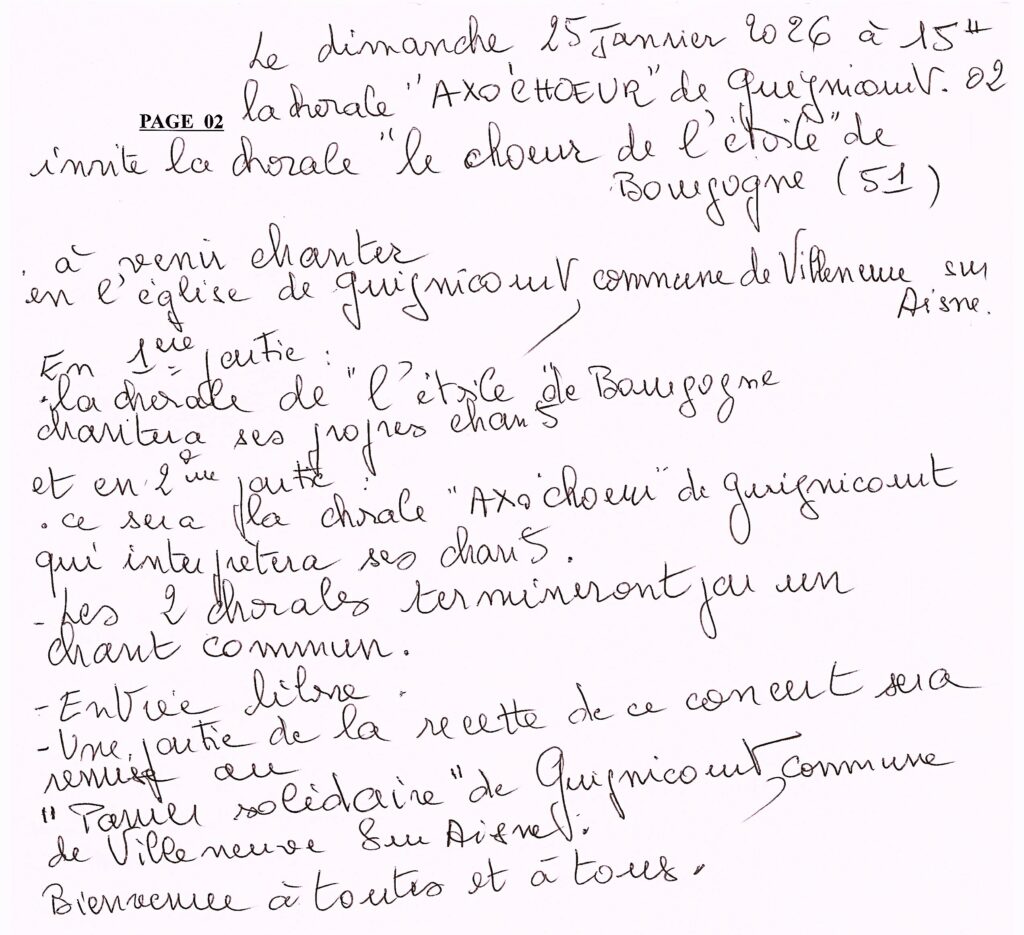 Le dimanche 25 Janvier 2026 à 15H
la chorale "AXO'CHOEUR" de Guignicourt. 02
PAGE 02
invite la chorale "le choeur de l'étoile" de
Bourgogne (51)
. à venir chanter
en l'église de Guignicourt commune de Villeneuve sur
Aisne.
En 1ère partie :
. la chorale de "l'étoile" de Bourgogne
chantera ses propres chanS
et en 2ème partie :
. ce sera la chorale "AXO'choeur" de guignicourt
qui interpretera ses chanS.
- Les 2 chorales termineront par un
chant commun.
- Entrée libre.
- Une partie de la recette de ce concert sera
remise au
"Panier solidaire" de Guignicourt, commune
de Villeneuve Sur Aisne.
Bienvenue à toutes et à tous.